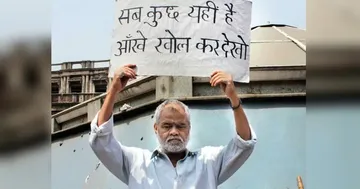 सब कुछ यहीं है
आँखें खोल कर देखो